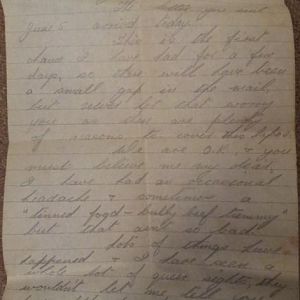 The                you sent
June 5 arrived today.
This is the first
chance I have had for a few
days, so there will have been
a small gap in the mail,
but never let that worry
you as there are plenty
of reasons, to cover this
We are O.K. & you
must believe me my dear,
I have had an occasional
headache & sometimes a
"tinned food - bully beef tummy"
but that isn't so bad.
Lots of things have
happened & I have seen a
whole lot of queer sights, they
wouldn't let me tell